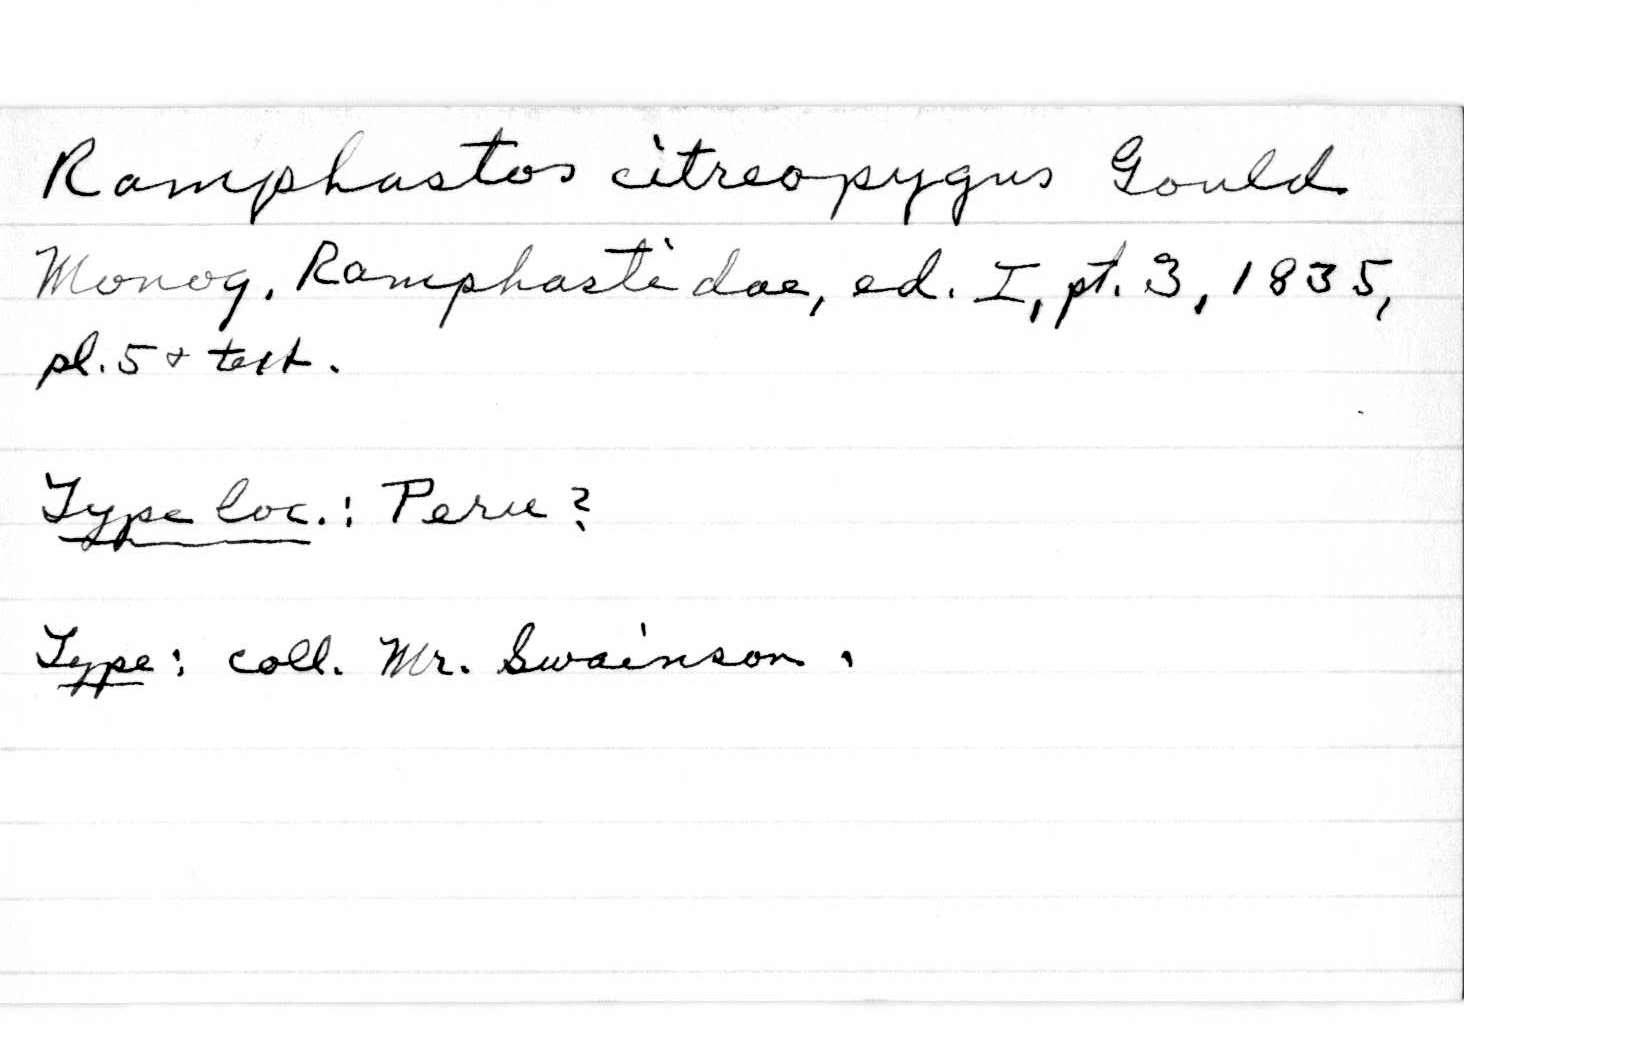 Ramphastos citreopygus Gould
Monog. Ramphastidae, ed. I, pt. 3, 1835,
pl. 5 & text.
Type loc.: Peru?
Type: coll. Mr. Swainson.